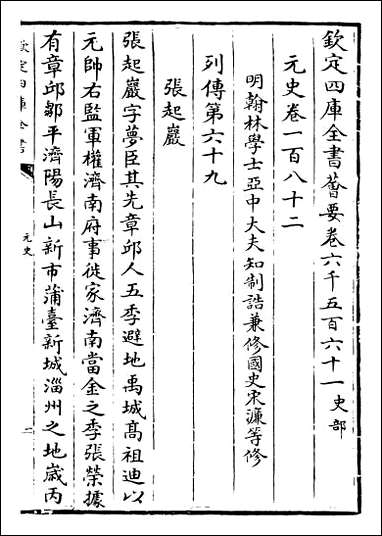 欽定四庫全書薈要卷六千五百六十一史部
元史卷一百八十二
明翰林學士亞中大夫知制誥兼修國史宋濂等修
列傳第六十九
張起巖
張起巖字夢臣其先章邱人五季避地禹城髙祖迪以
元帥右監軍權濟南府事徙家濟南當金之季張榮據
有章邱鄒平濟陽長山新市蒲臺新城淄州之地歲丙
欽定四庫全書
元史
一